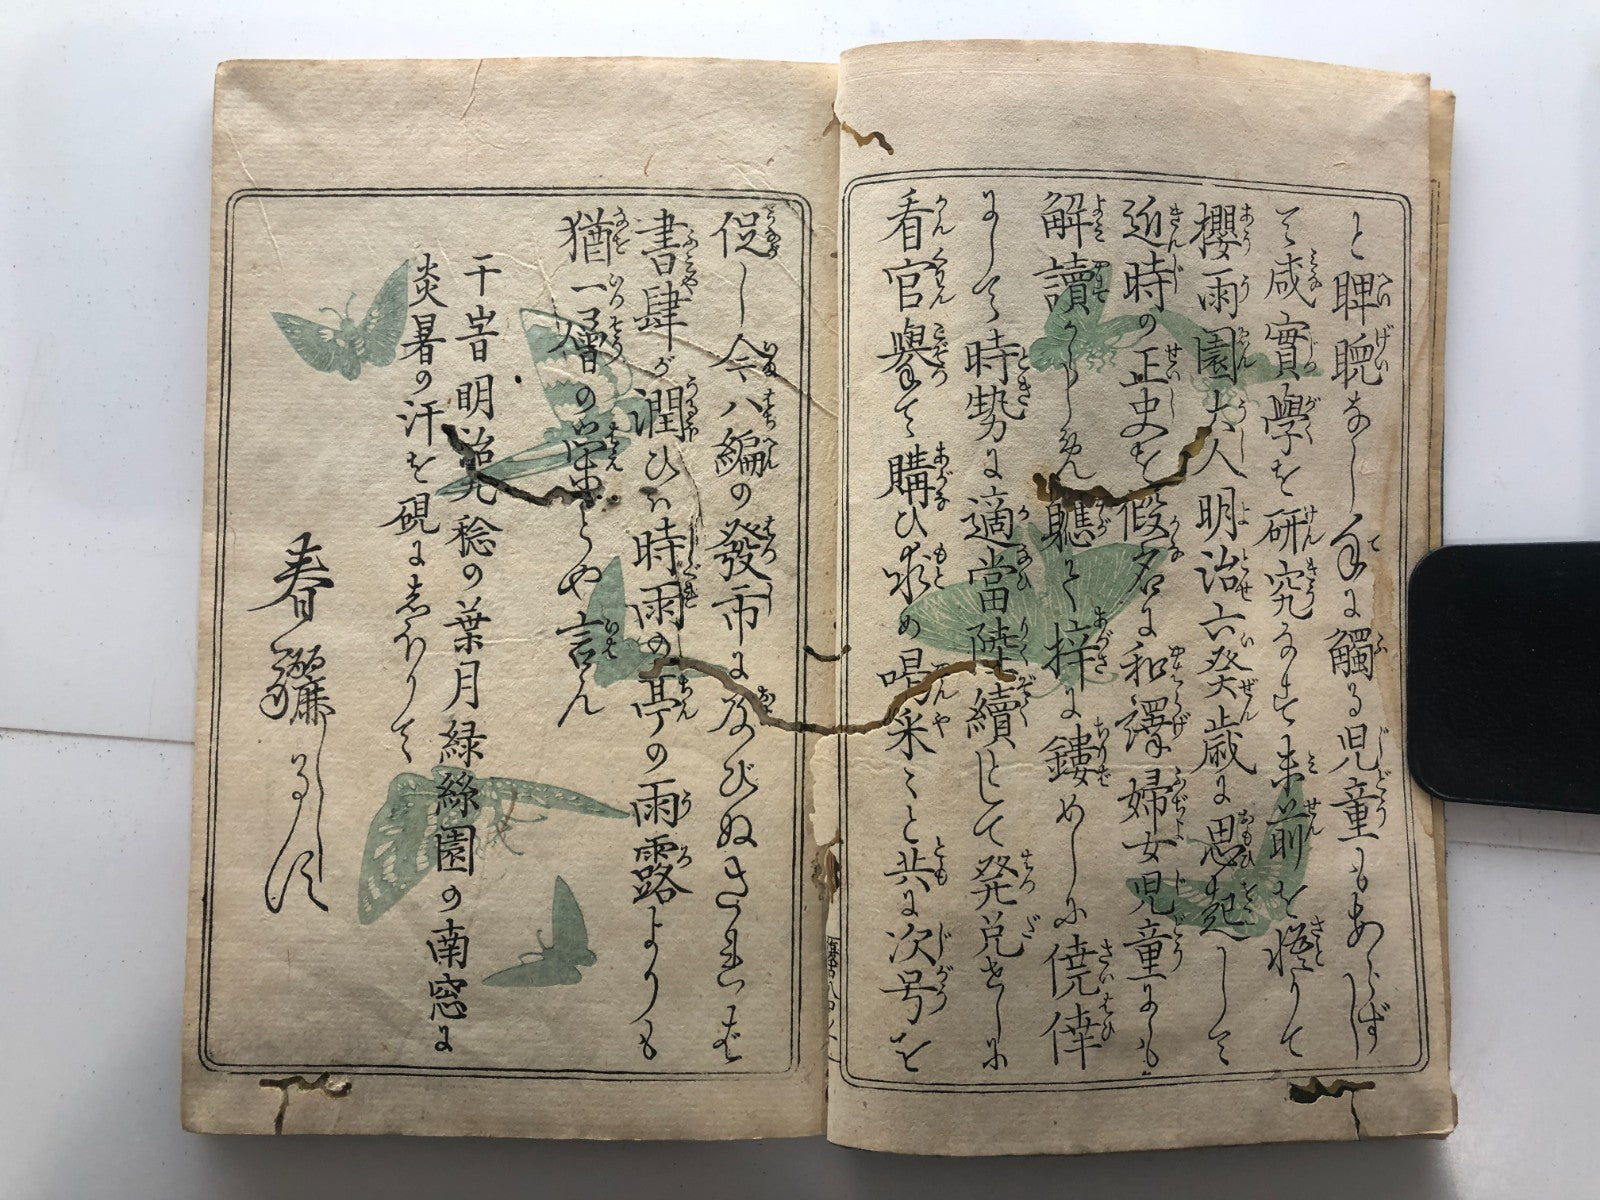 と睥睨なし手に觸る児童もあらず
て咸實學を研究なさば未前を悟りて
櫻雨園大人明治六癸歳に思起して
近時の正史を假名に和譯婦女児童にも
解讀がらしめん聽て梓に鏤めしに僥倖
にして時勢に適當陸續として発兌せしに
看官擧て購ひ求め喝采〻と共に次号を
促し今八編の發市に及びぬされば
書肆が潤ひは時雨の亭の雨露よりも
猶一層の栄とや言ん
干旹明治九稔の葉月緑絲園の南窓に
炎暑の汗を硯にしたゝりて
春